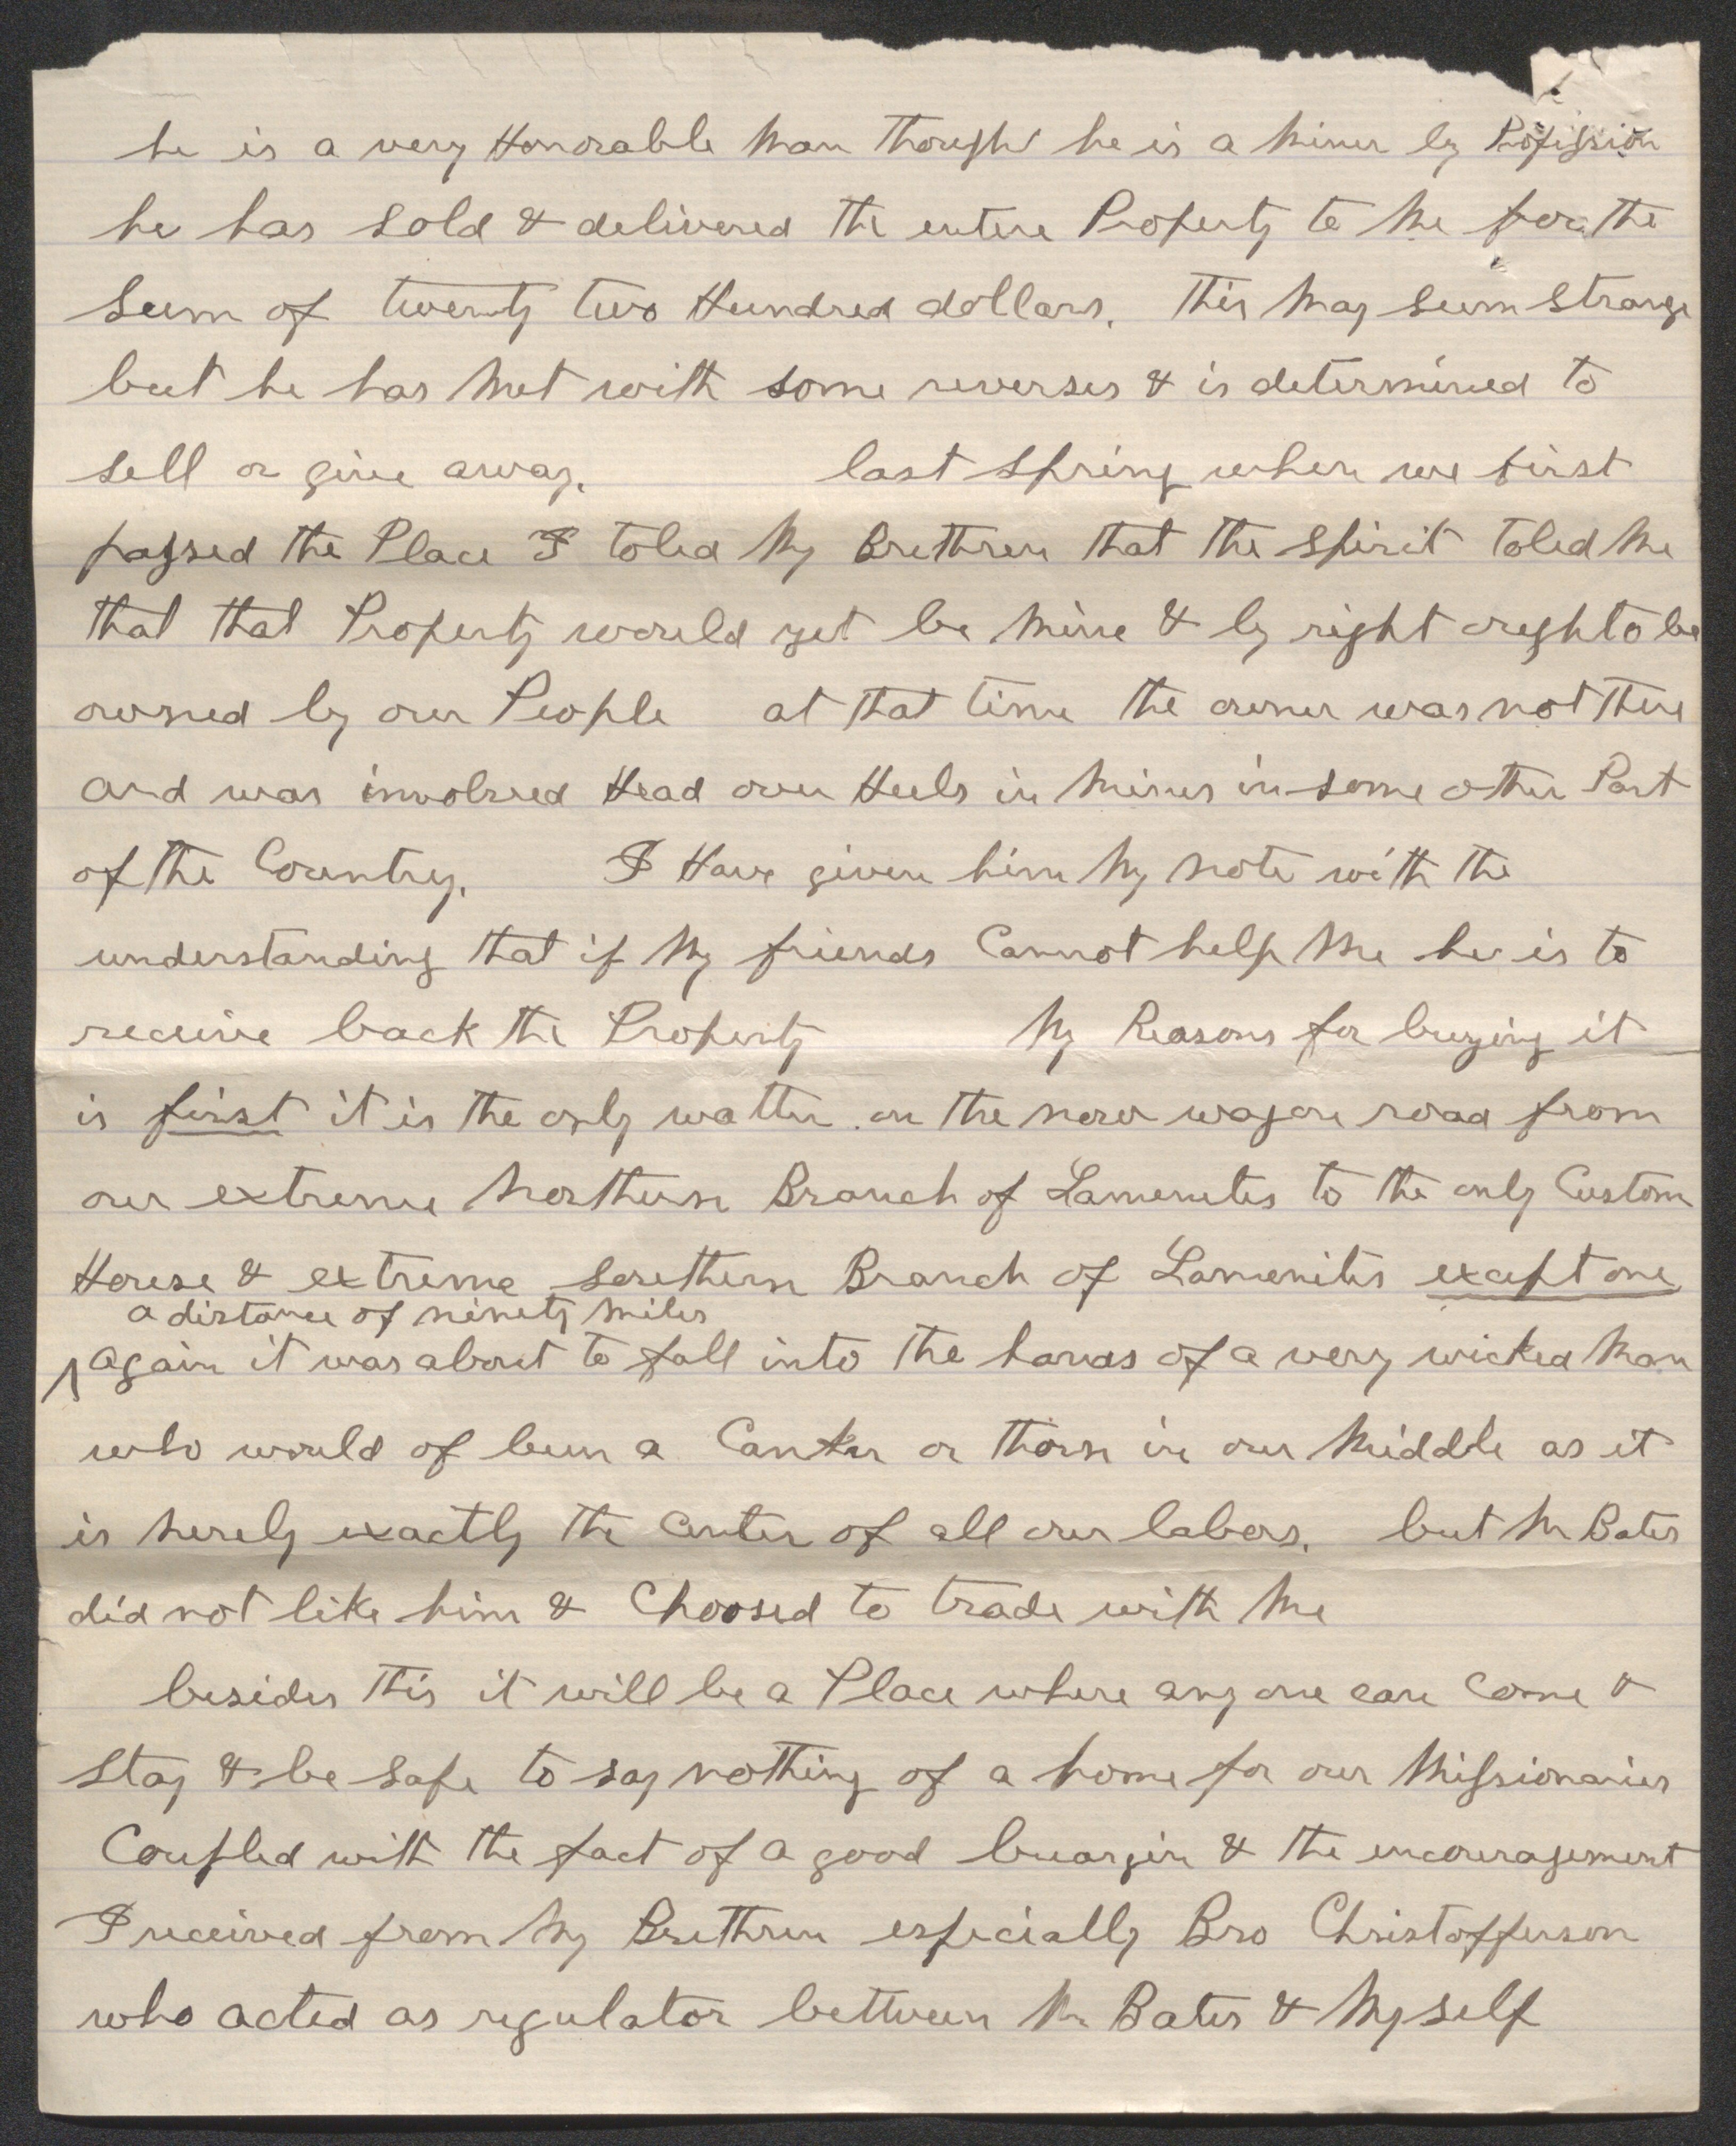 he is a very Honorable Man though he is a Miner by Profission
he has sold & delivered the entire Property to Me for the
Sum of twenty two Hundred dollars. this May seem strange
but he has Met with some reverses & is determined to
sell or give away. last spring when we first
passed the Place I toled My Brethren that the spirit toled Me
that that Property would yet be Mine & by right ought to be
owned by our People at that time the owner was not there
and was involved Head over Heels in Mines in some other Part
of the Country. I Have given him My note with the
understanding that if My friends Cannot help Me he is to
receive back the Property My Reasons for buying it
is first it is the only watter on the new wagon road from
our extreme Northern Branch of Lamenites to the only Custom
House & extreme southern Branch of Lamenites except one
a distance of ninety Miles
Again it was about to fall into the hands of a very wicked Man
who would of been a Canker or thorn in our Middle as it
is nerely exactly the Center of all our labors. but Mr Bates
did not like him & Choosed to trade with Me
besides this it will be a Place where any one can Come &
stay & be safe to say nothing of a home for our Missionaries
Coupled with the fact of a good buargin & the encouragement
I received from My Brethren especially Bro Christofferson
who acted as regulator bettween Mr Bates & Myself